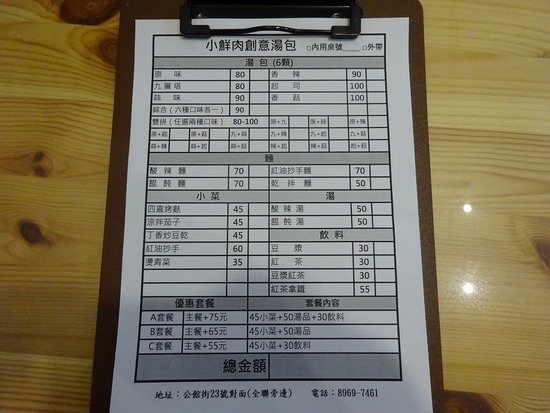 小鮮肉創意湯包 □內用桌號____ □外帶
湯 包 (6顆)
原 味 80 香 辣 90
九層塔 80 起 司 100
蒜 味 90 香 菇 100
綜合(六種口味各一) 90
雙拼(任選兩種口味) 80-100 原+九 原+蒜 原+辣
原+起 原+菇 九+蒜 九+辣 九+起 九+菇
蒜+辣 蒜+起 蒜+菇 辣+起 辣+菇 起+菇
麵
酸 辣 麵 70 紅油抄手麵 70
餛 飩 麵 70 乾 拌 麵 50
小 菜 湯
四喜烤麩 45 酸 辣 湯 50
涼拌茄子 45 餛 飩 湯 50
丁香炒豆乾 45 飲 料
紅油抄手 60 豆 漿 30
燙青菜 35 紅 茶 30
豆漿紅茶 30
紅茶拿鐵 55
優惠套餐 套餐內容
A套餐 主餐+75元 45小菜+50湯品+30飲料
B套餐 主餐+65元 45小菜+50湯品
C套餐 主餐+55元 45小菜+30飲料
總金額
地址：公館街23號對面(全聯旁邊) 電話：8969-7461